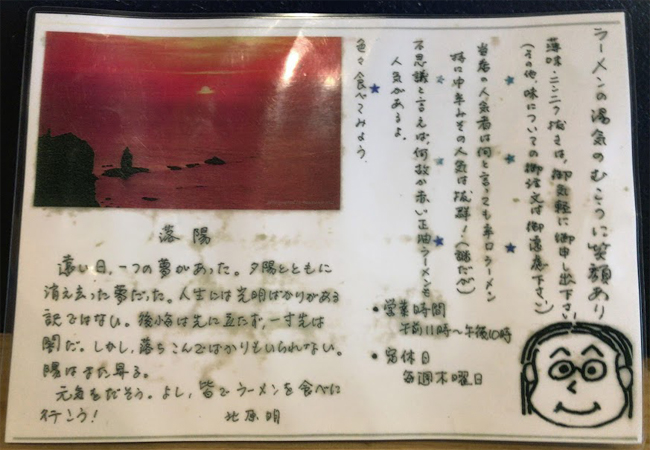 ラーメンの湯気のむこうに笑顔あり
薄味・ニンニク抜きは、御気軽に御申し出下さい
(その他、味についての御注文は御遠慮下さい)
当店の人気者は何と言っても辛口ラーメン
特に中辛みその人気は抜群!(謎だが)
不思議と言えば、何故か赤い正油ラーメンも
人気があるよ。
色々食べてみよう。
・営業時間
午前11時〜午後10時
・定休日
毎週木曜日
落陽
遠い日、一つの夢があった。夕陽とともに
消え去った夢だった。人生には光明ばかりがある
訳ではない。後悔は先に立たず、一寸先は
闇だ。しかし、落ちこんでばかりもいられない。
陽はまた昇る。
元気をだそう。よし、皆でラーメンを食べに
行こう!
北原明